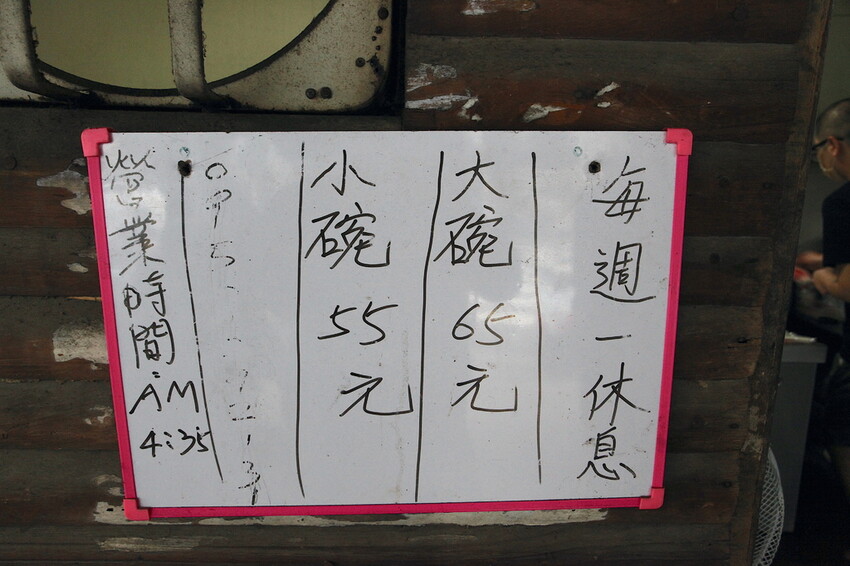 每週一休息
大碗 65元
小碗 55元
營業時間:AM 4:35